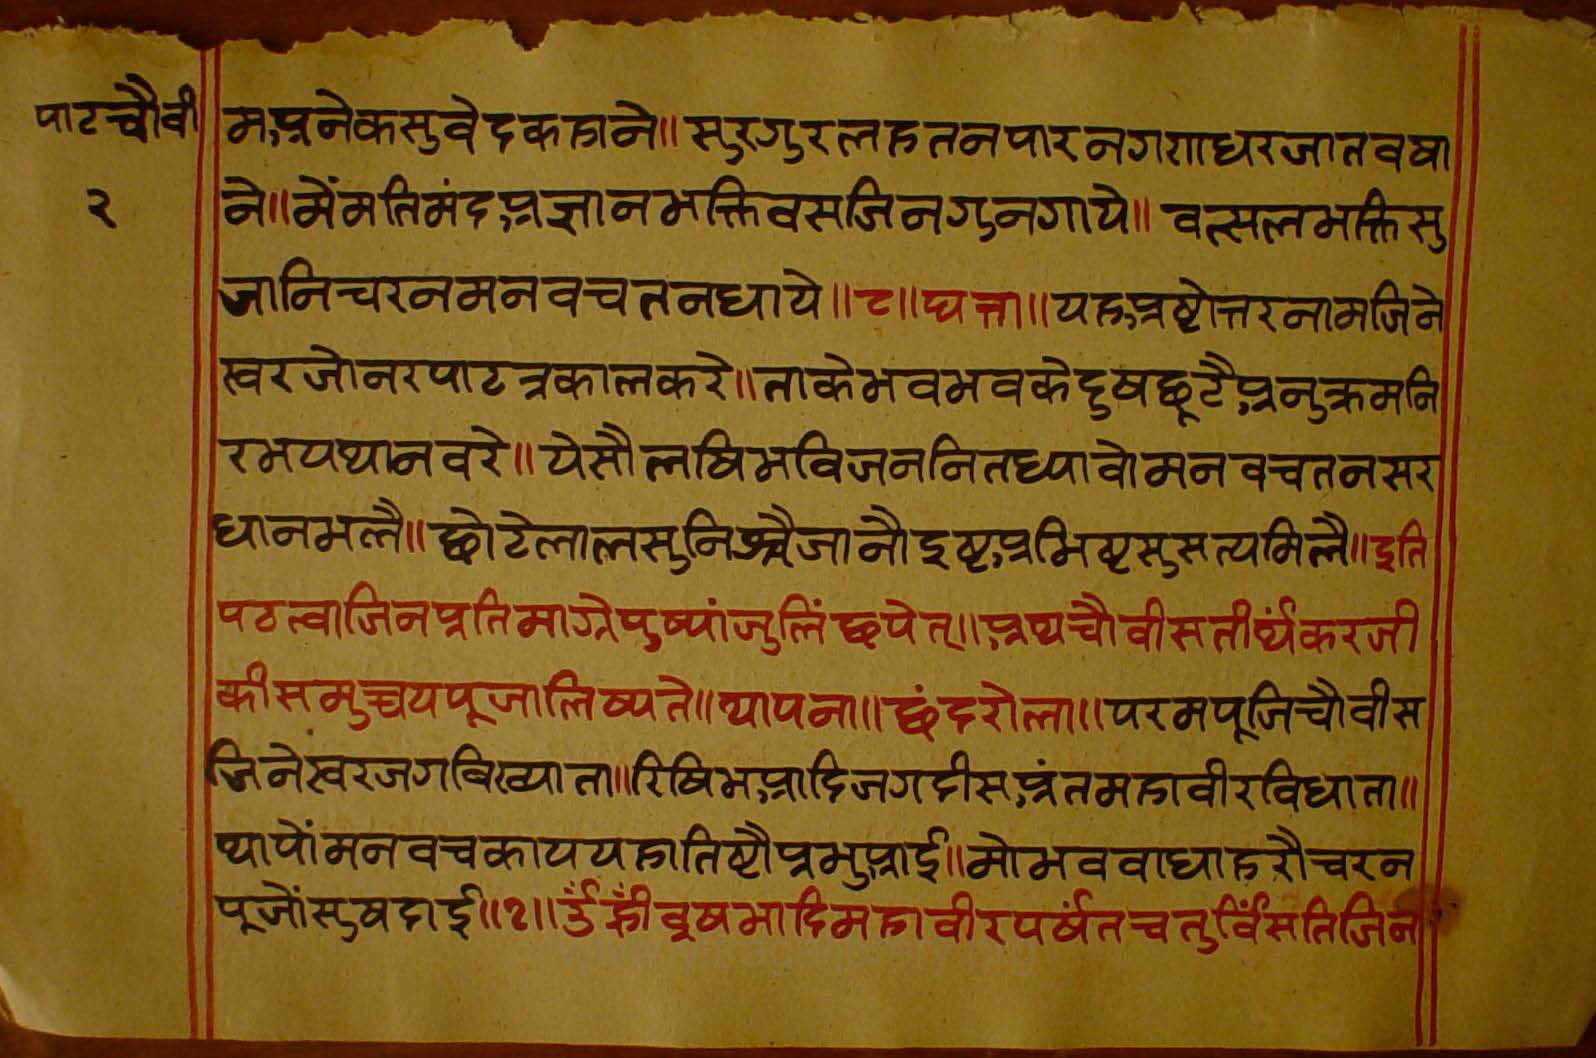 पाट चौवी
२
म अनेक सुवेद कहाने ॥ सुरगुर लहत न पार न गणधर जात वषा
ने ॥ में मतिमंद अज्ञान भक्ति वस जिन गुन गाये ॥ वत्सल भक्ति सु
जानि चरन मन वच तन ध्याये ॥ ८ ॥ घत्ता ॥ यह अष्टोत्तर नाम जिने
स्वर जो नर पाट त्रकाल करे ॥ ताके भव भव के दुष छूटै अनुक्रम नि
रभय थान वरे ॥ ये सौ लषि भविजन नित ध्यावो मन वच तन सर
धान भलै ॥ छोटेलाल सुनिश्चै जानौ इष्ट अभिष्ट सु सत्य मिलै ॥ इति
पठत्वा जिन प्रतिमाग्रे पुष्पांजुलिं छपेत् ॥ अथ चौवीस तीर्थंकरजी
की समुच्चय पूजा लिष्यते ॥ थापना ॥ छंद रोला ॥ परम पूजि चौवीस
जिनेस्वर जग विख्याता ॥ रिषिभ आदि जगदीस अंत महावीर विधाता ॥
थापों मन वच काय यहा तिष्टौ प्रभु आई ॥ मो भव वाधा हरौ चरन
पूजों सुषदाई ॥ १ ॥ उँ ह्रीँ वृषभादि महावीर पर्यंत चतुर्विंसति जिन